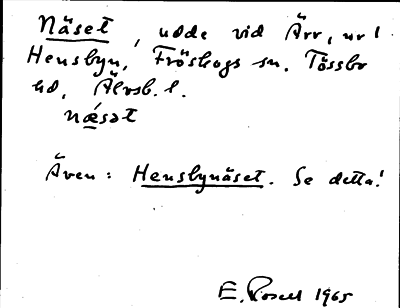 Näset, udde vid Ärr, ur
Hensbyn, Fröskogs sn. Tössbo
hd, Älvsb. l.
næ̀sət
Även: Hensbynäset. Se detta!
E. Rosell 1965